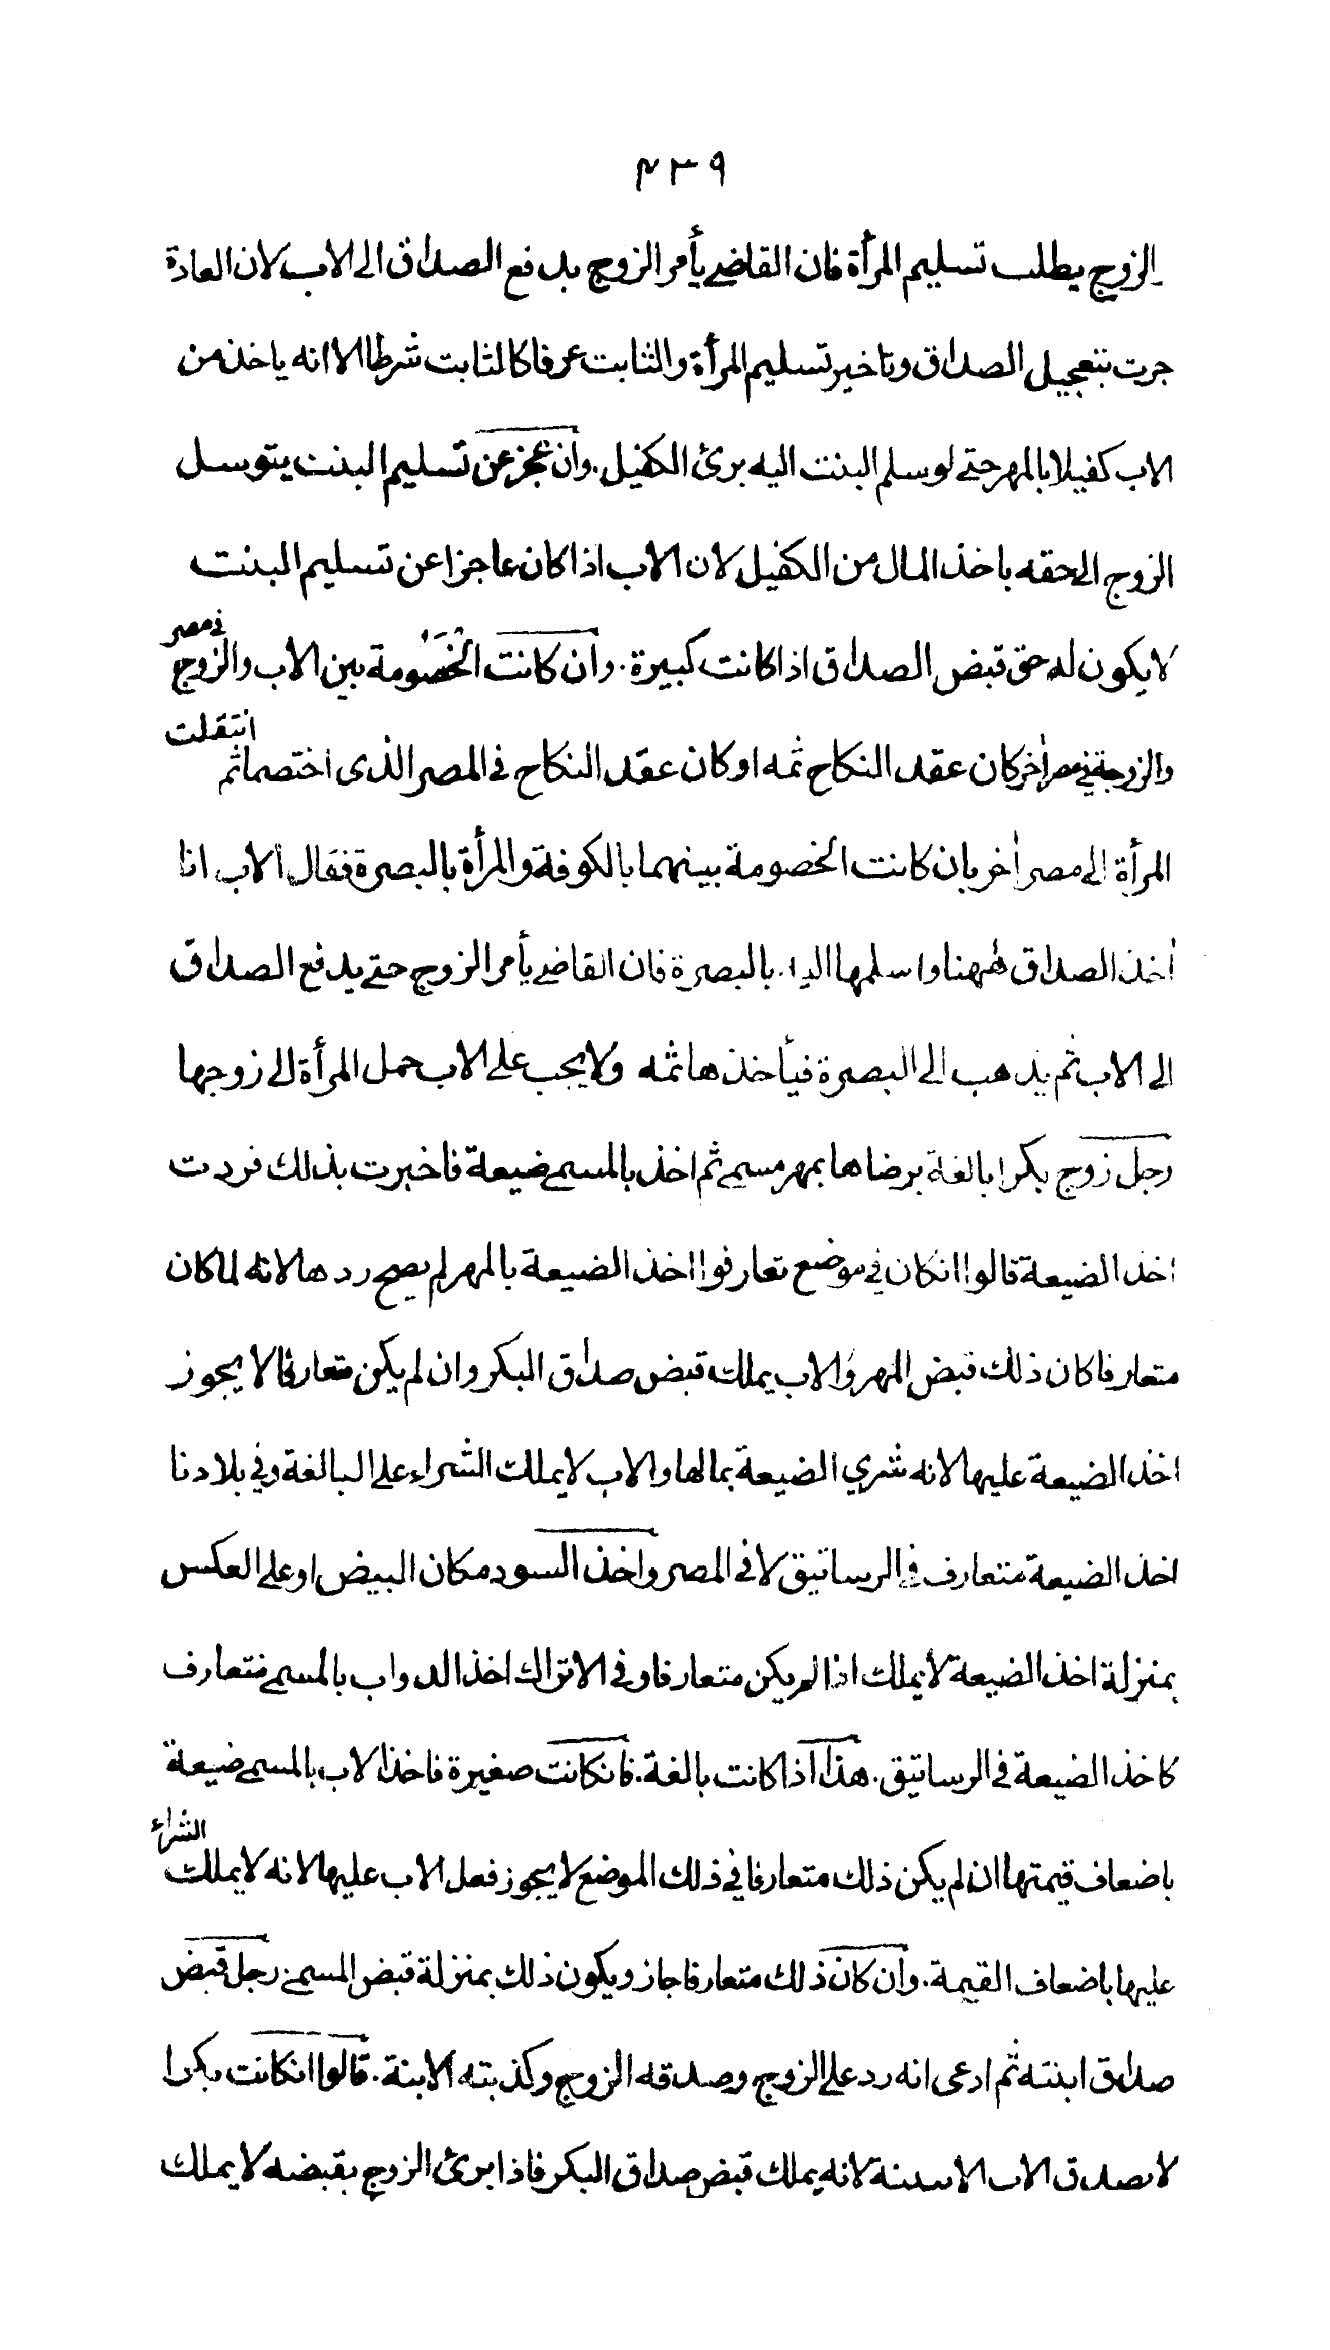 ٤٣٩
الزوج يطلب تسليم المرأة فان القاضي يأمر الزوج بدفع الصداق الى الاب لان العادة
جرت بتعجيل الصداق وتاخير تسليم المرأة والثابت عرفا كالثابت شرطا الا انه ياخذ من
الاب كفيلا بالمهر حتى لو سلم البنت اليه برئ الكفيل. وان عجز عن تسليم البنت يتوسل
الزوج الى حقه باخذ المال من الكفيل لان الاب اذا كان عاجزا عن تسليم البنت
لا يكون له حق قبض الصداق اذا كانت كبيرة. وان كانت الخصومة بين الاب والزوج في مصر
والزوجة في مصر اخر كان عقد النكاح ثمه او كان عقد النكاح في المصر الذى اختصما ثم انتقلت
المرأة الى مصر اخر بان كانت الخصومة بينهما بالكوفة والمرأة بالبصرة فقال الاب انا
أخذ الصداق ههنا واسلمها اليه بالبصرة فان القاضي يأمر الزوج حتى يدفع الصداق
الى الاب ثم يذهب الى البصرة فيأخذها ثمه ولا يجب على الاب حمل المرأة الى زوجها
رجل زوج بكرا بالغة برضاها بمهر مسمى ثم اخذ بالمسمى ضيعة فاخبرت بذلك فردت
اخذ الضيعة قالوا انكان في موضع تعارفوا اخذ الضيعة بالمهر لم يصح ردها لانه لما كان
متعارفا كان ذلك قبض المهر والاب يملك قبض صداق البكر وان لم يكن متعارفا لا يجوز
اخذ الضيعة عليها لانه شري الضيعة بمالها والاب لا يملك الشراء على البالغة وفي بلادنا
اخذ الضيعة متعارف في الرساتيق لا في المصر واخذ السود مكان البيض او على العكس
بمنزلة اخذ الضيعة لا يملك اذا لم يكن متعارفا وفي الاتراك اخذ الدواب بالمسمى متعارف
كاخذ الضيعة في الرساتيق. هذا اذا كانت بالغة. فانكانت صغيرة فاخذ الاب بالمسمى ضيعة
باضعاف قيمتها ان لم يكن ذلك متعارفا في ذلك الموضع لا يجوز فعل الاب عليها لانه لا يملك الشراء
عليها باضعاف القيمة. وان كان ذلك متعارفا جاز ويكون ذلك بمنزلة قبض المسمى. رجل قبض
صداق ابنته ثم ادعى انه رد على الزوج وصدقه الزوج وكذبته الابنة. قالوا انكانت بكرا
لا يصدق الاب الا ببينة لانه يملك قبض صداق البكر فاذا برئ الزوج بقبضه لا يملك